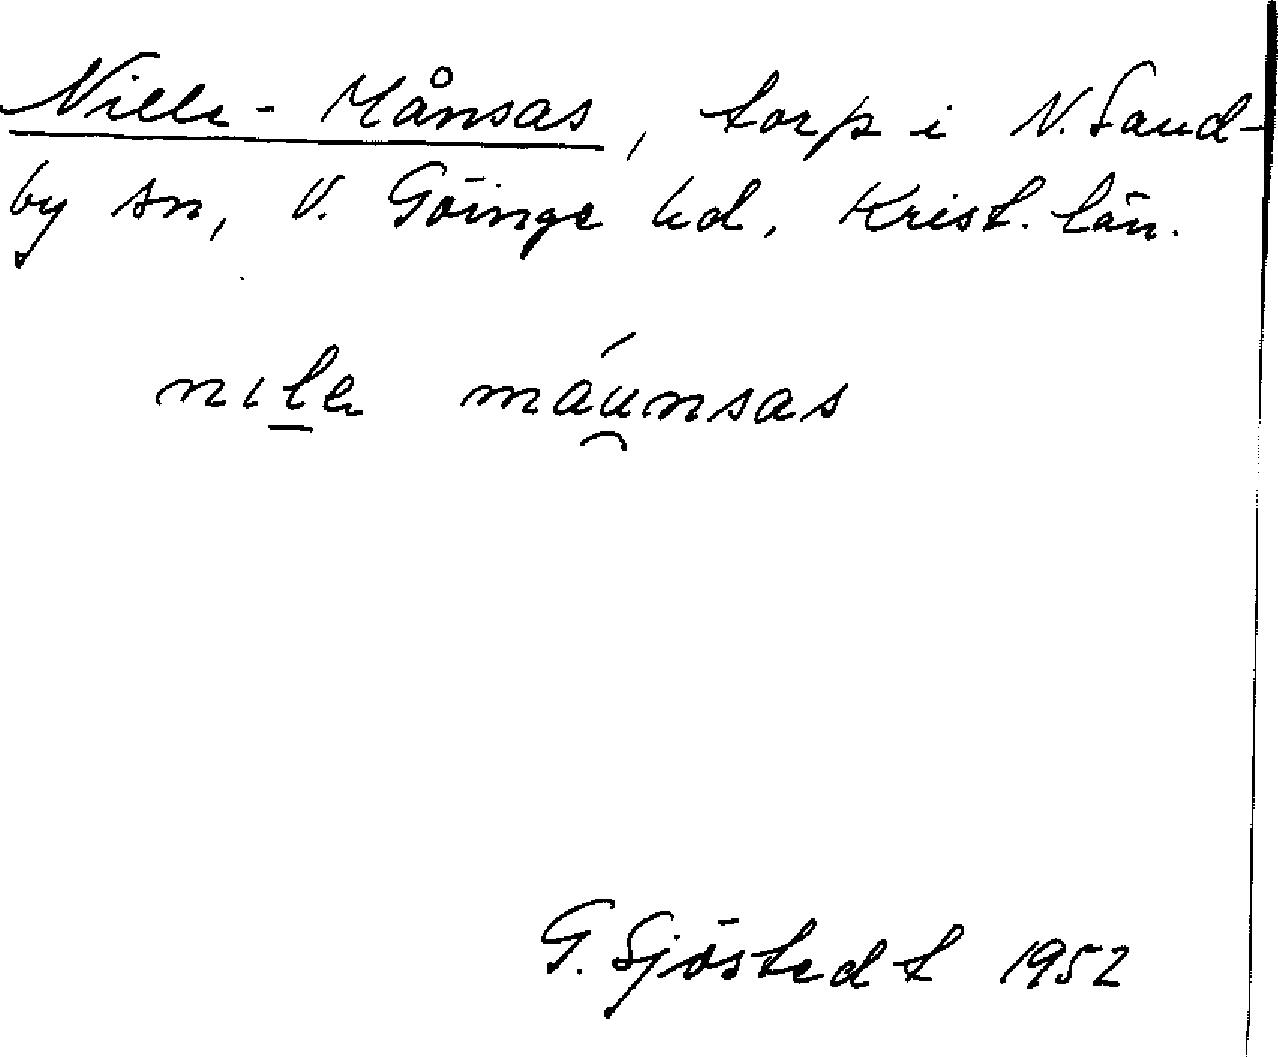 Nille-Månsas, torp i N. Sand-
by sn, V. Göinge hd, Krist. län.
nıl̲e máu̯nsas
G. Sjöstedt 1952